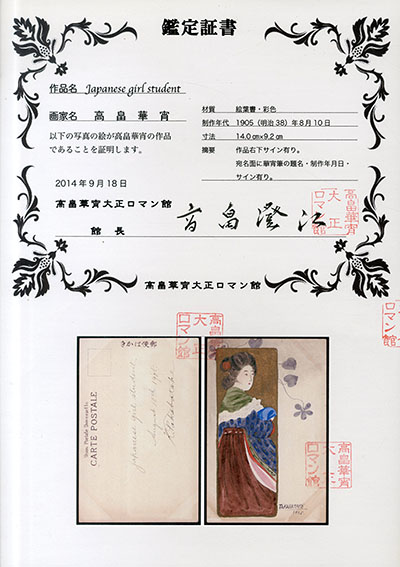 鑑定証書
作品名 Japanese girl student
画家名 高畠華宵
以下の写真の絵が高畠華宵の作品
であることを証明します。
2014年9月18日
高畠華宵大正ロマン館
館長 高畠澄江
材質 絵葉書・彩色
制作年代 1905(明治38)年8月10日
寸法 14.0㎝×9.2㎝
摘要 作品右下サイン有り。
宛名面に華宵筆の題名・制作年月日・
サイン有り。
高畠華宵
大正
ロマン館
高畠華宵大正ロマン館
高畠華宵
大正
ロマン館
ロマン館
きかは便郵
CARTE POSTALE
japanese girl student
高畠華宵
大正
ロマン館
1905